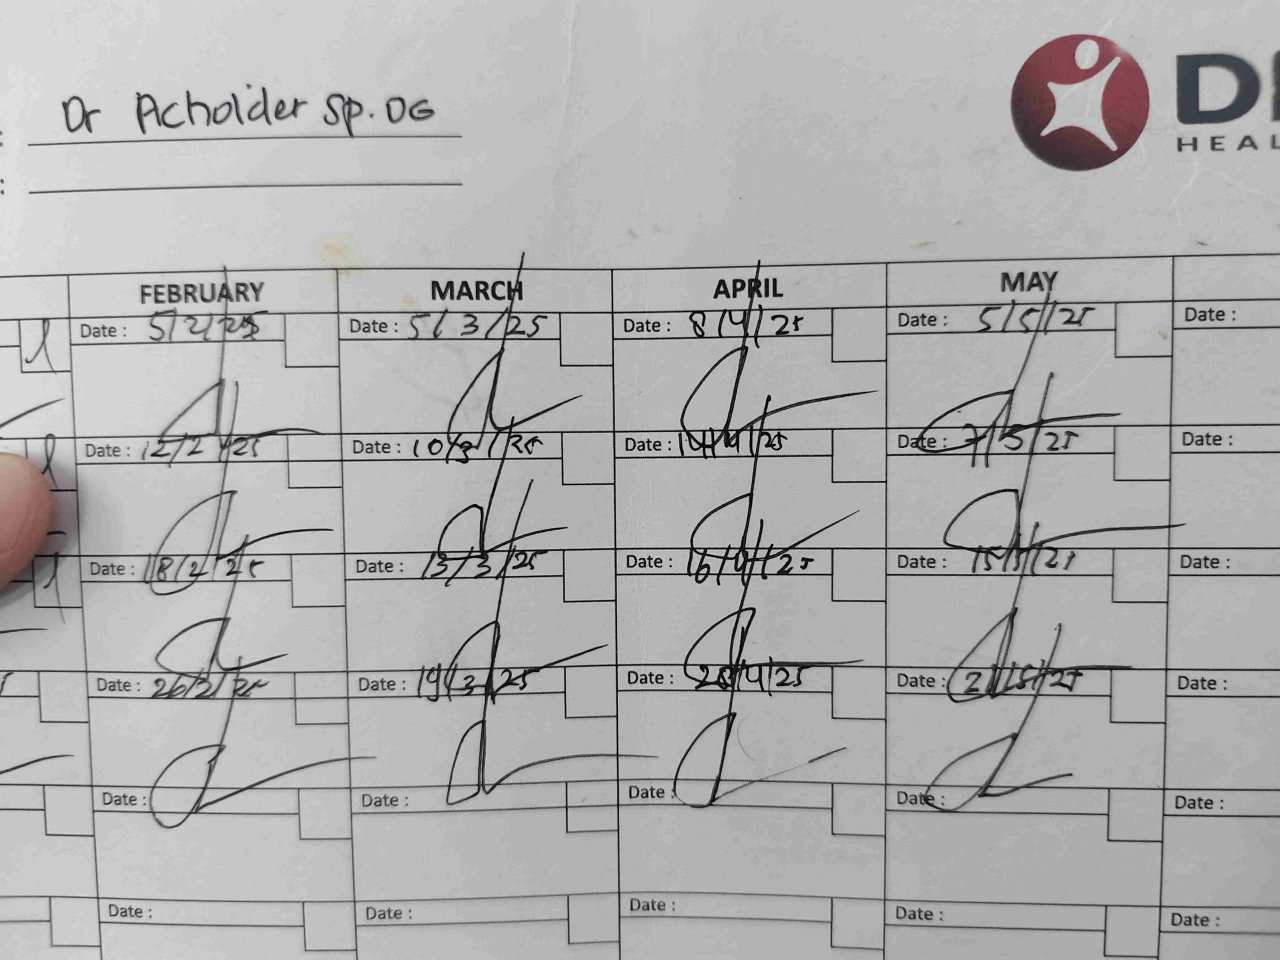 : Dr Acholder Sp. OG
:
D
HEAL
FEBRUARY MARCH APRIL MAY
Date : 5/2/25 Date : 5/3/25 Date : 8/4/25 Date : 5/5/25 Date :
Date : 12/2/25 Date : 10/3/25 Date : 14/4/25 Date : 7/5/25 Date :
Date : 18/2/25 Date : 13/3/25 Date : 16/4/25 Date : 15/5/25 Date :
Date : 26/2/25 Date : 19/3/25 Date : 28/4/25 Date : 21/5/25 Date :
Date : Date : Date : Date : Date :
Date : Date : Date : Date : Date :